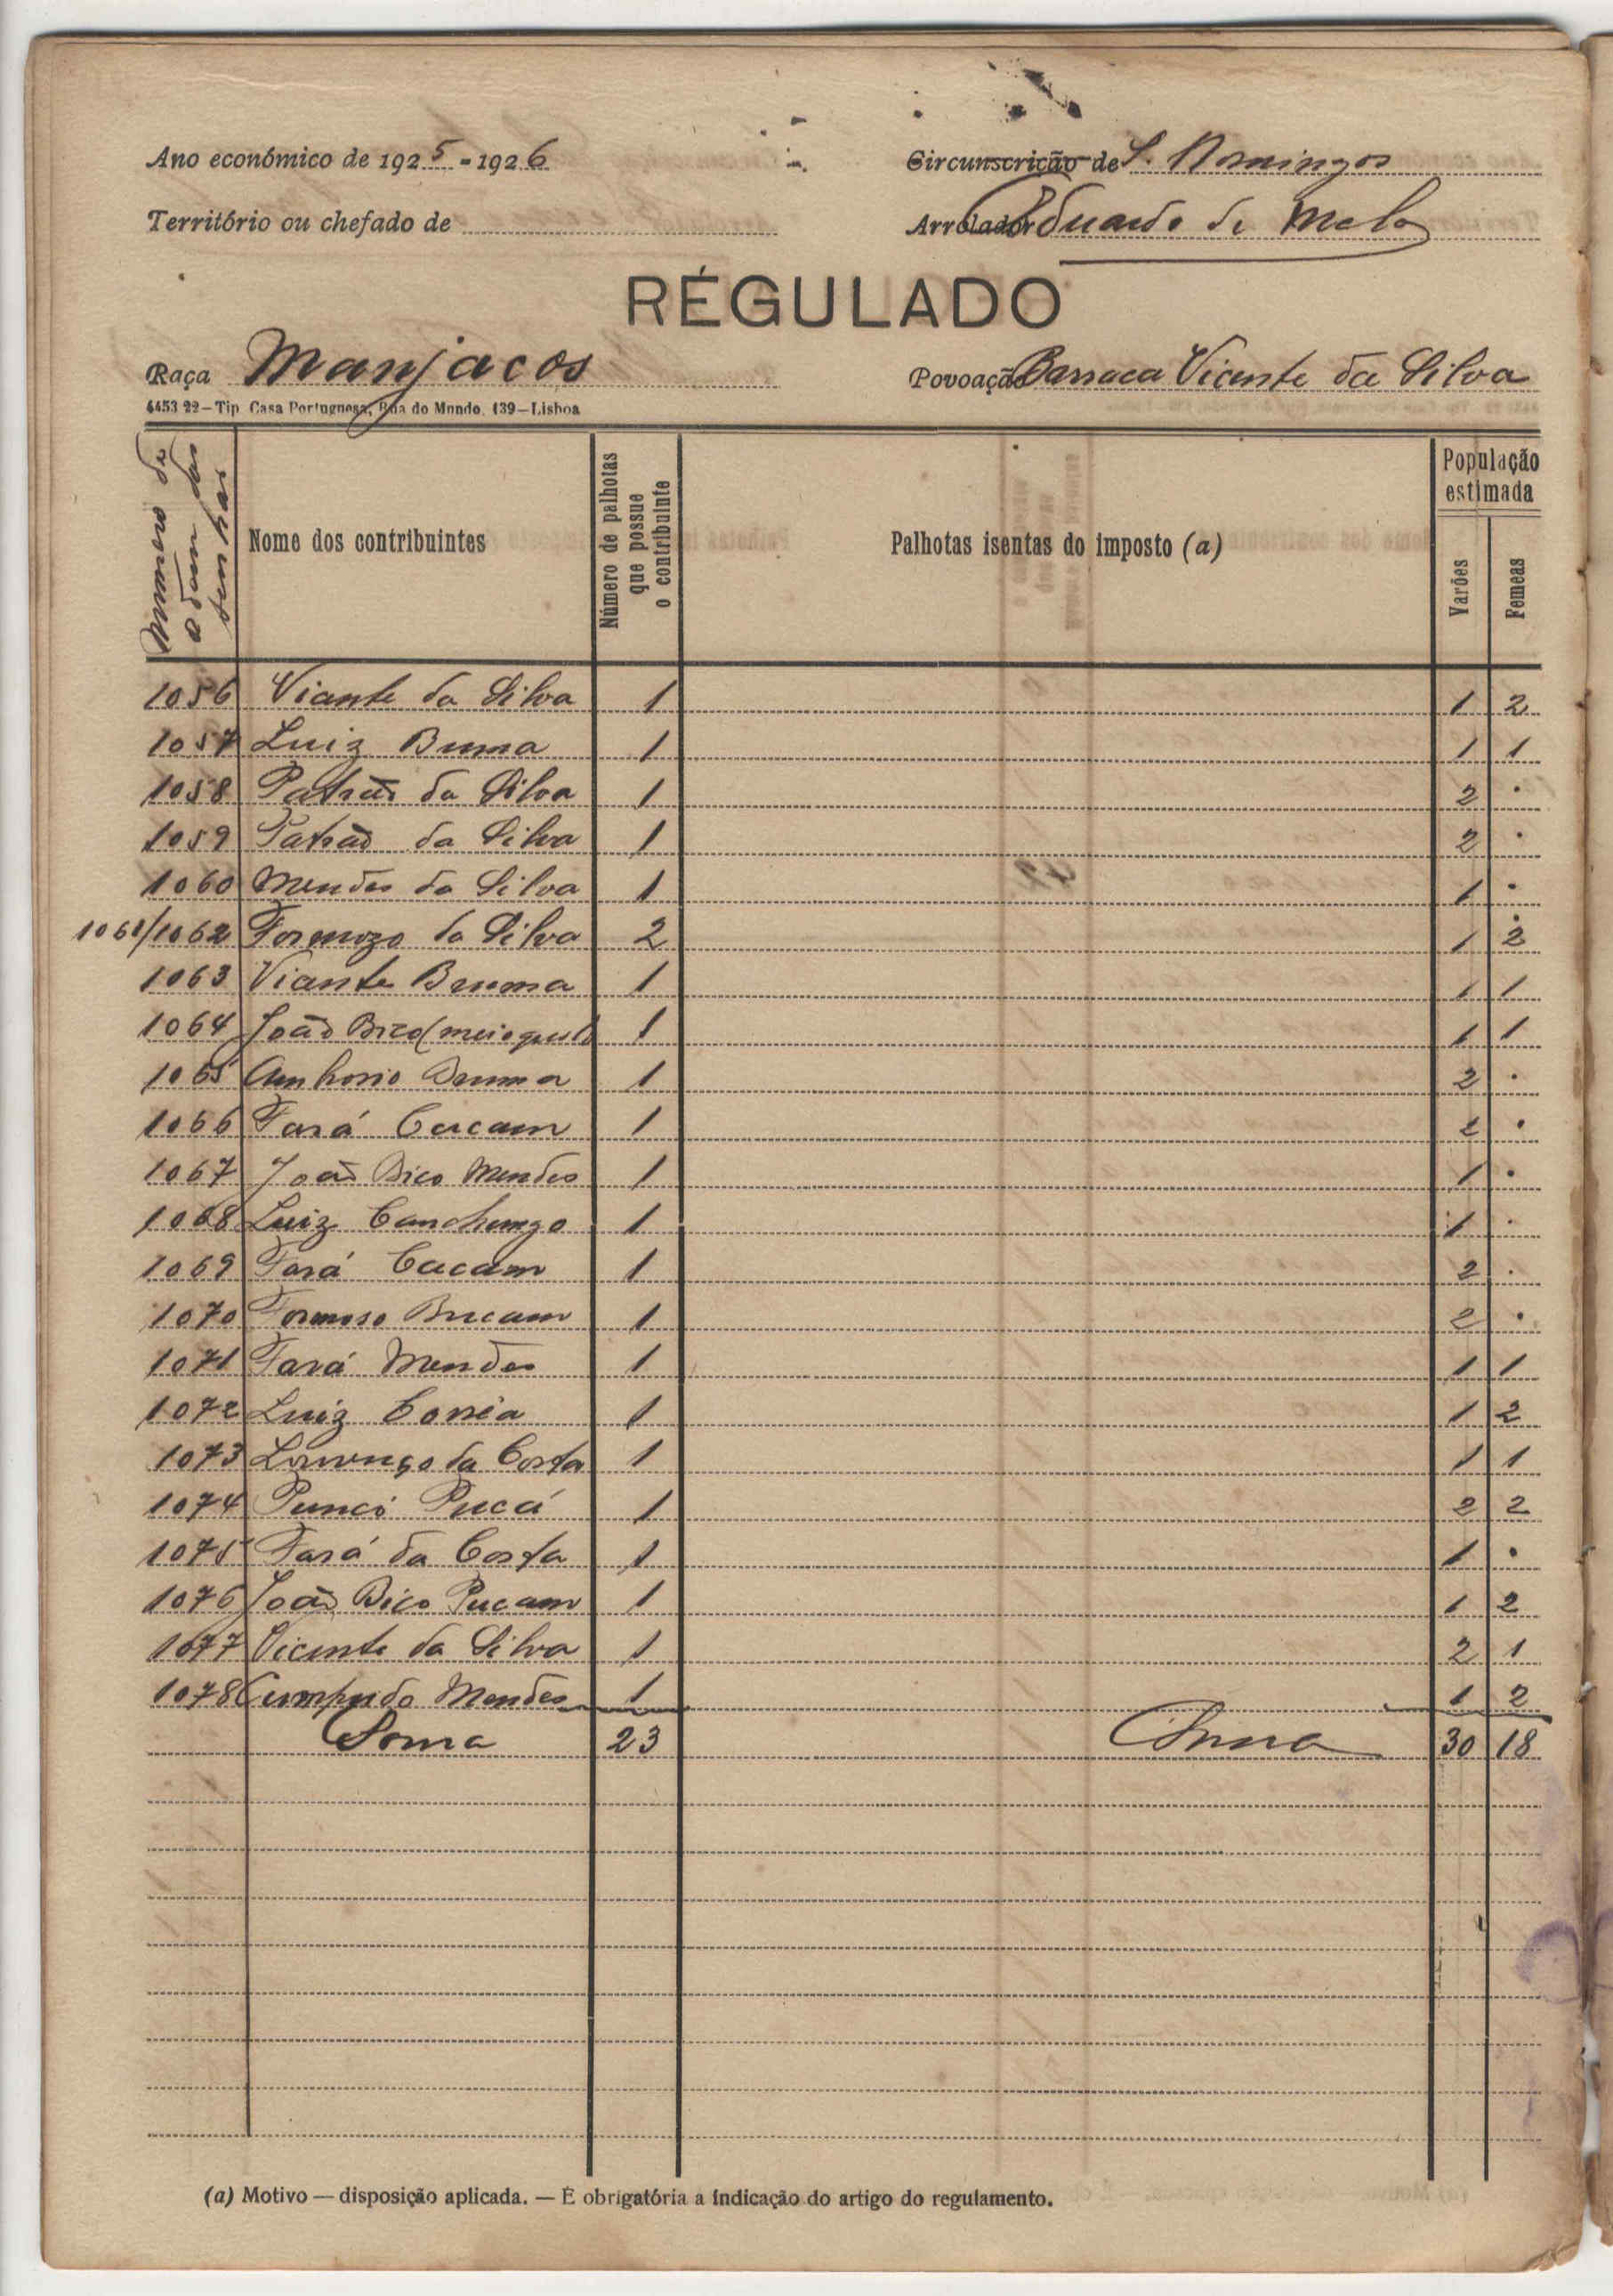 Ano económico de 1925-1926
Circunscrição de S. Domingos
Território ou chefado de
Arrolador Eduardo de Melo
RÉGULADO
Raça Manjacos
Povoação Barraca Vicente da Silva
4453 22—Tip. Casa Portuguesa, Rua do Mundo, 139—Lisboa
Numero de
ordem das
Nome dos contribuintes
Número de palhotas
que possue
o contribuinte
Palhotas isentas do imposto (a)
População
estimada
Varões
Femeas
1056 Viante da Silva 1 1 2
1057 Luiz Buma 1 1 1
1058 Patrão da Silva 1 2 .
1059 Patrão da Silva 1 2 .
1060 Mendes da Silva 1 1 .
1061/1062 Formozo da Silva 2 1 2
1063 Viante Bruma 1 1 1
1064 João Bico 1 1 1
1065 1 2 .
1066 Fará Cacam 1 2 .
1067 João Bico Mendes 1 1 .
1068 Luiz Canchungo 1 1 .
1069 Fará Cacam 1 2 .
1070 Formoso Bucam 1 2 .
1071 Fará Mendes 1 1 1
1072 Luiz Correia 1 1 2
1073 Lourenço da Costa 1 1 1
1074 Punci Pucá 1 2 2
1075 Fará da Costa 1 1 .
1076 João Bico Pucam 1 1 2
1077 Vicente da Silva 1 2 1
1078 Mendes 1 1 2
Soma 23 Soma 30 18
(a) Motivo — disposição aplicada. — É obrigatória a indicação do artigo do regulamento.